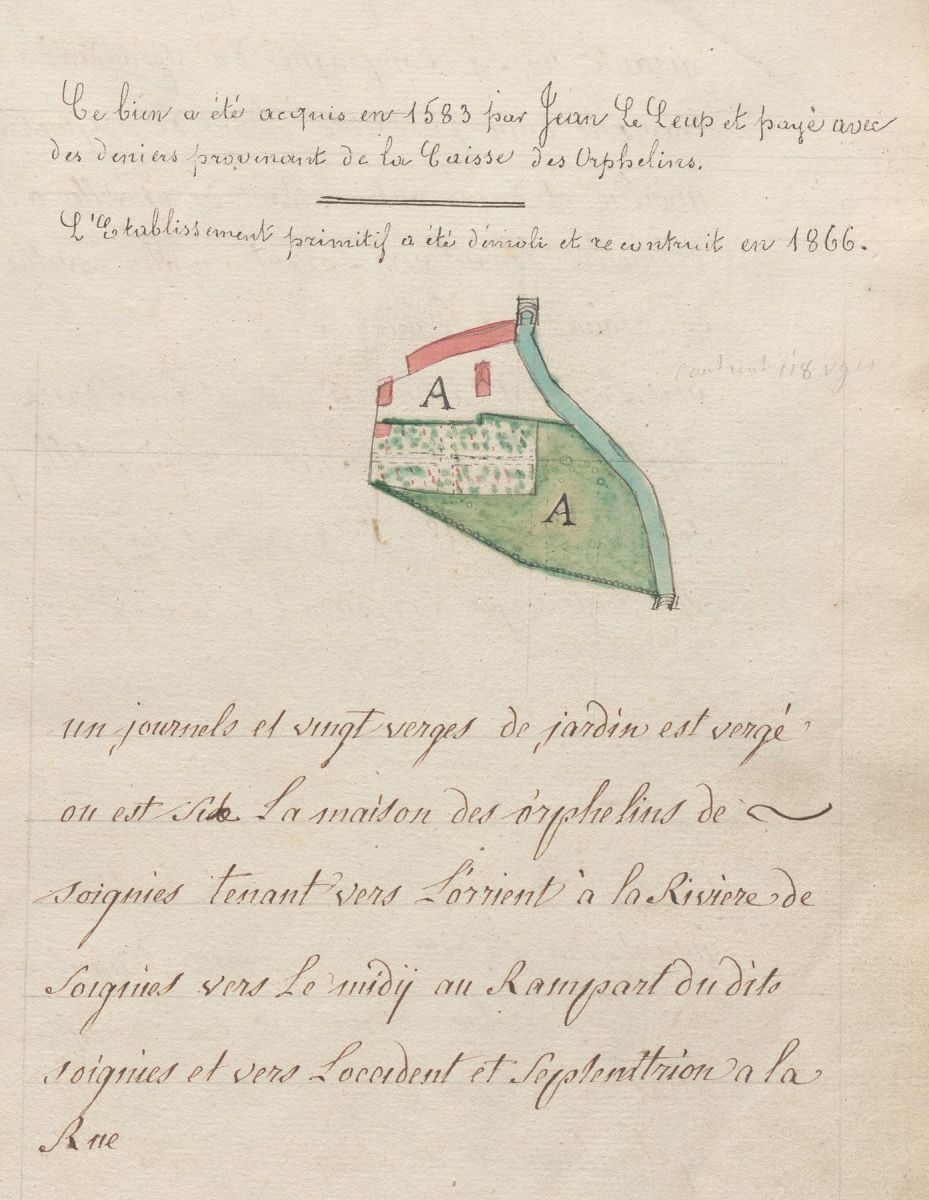 Ce bien a été acquis en 1583 par Jean Le Leup et payé avec
des deniers provenant de la Caisse des Orphelins.
L'Etablissement primitif a été démoli et recontruit en 1866.
contient 118 vges
A
A
un journels et vingt verges de jardin est vergé
ou est side La maison des orphelins de
soignies tenant vers L'orrient à la Riviere de
Soignies vers Le midij au Rampart du dits
soignies et vers Loccident et Septemttrion a la
Rue